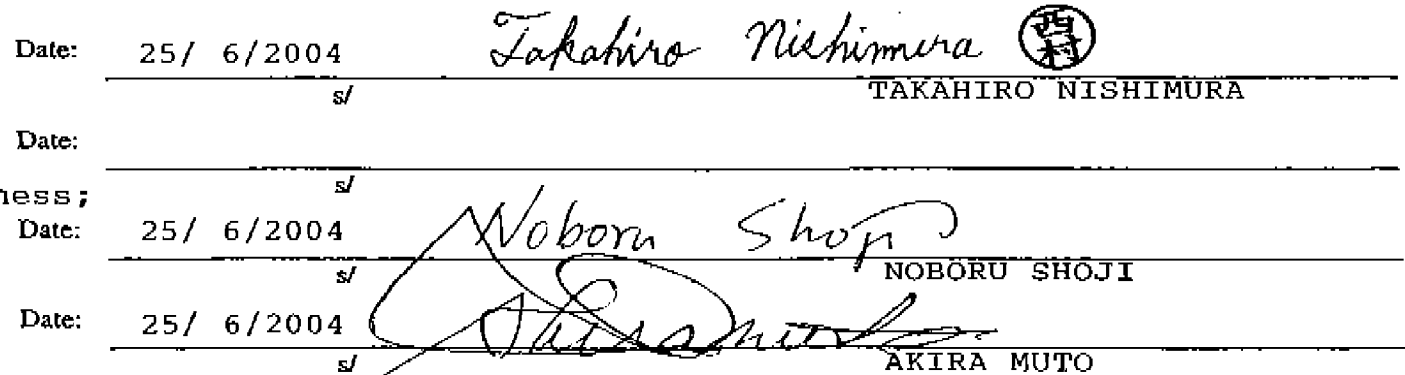 Date: 25/ 6/2004 Takahiro Nishimura 西村
s/ TAKAHIRO NISHIMURA
Date:
s/
ness;
Date: 25/ 6/2004 Noboru Shoji
s/ NOBORU SHOJI
Date: 25/ 6/2004 Akira Muto
s/ AKIRA MUTO